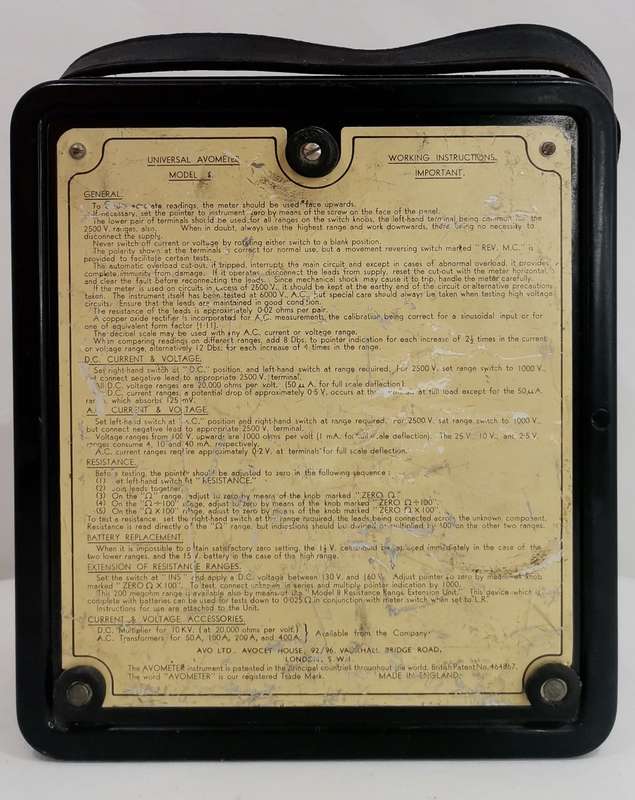 UNIVERSAL AVOMETER
MODEL
WORKING INSTRUCTIONS.
IMPORTANT.
GENERAL.
To readings, the meter should be used face upwards.
If necessary, set the pointer to instrument zero by means of the screw on the face of the panel.
The lower pair of terminals should be used for all ranges on the switch knobs, the left-hand terminal being common for the
2500 V. ranges, also. When in doubt, always use the highest range and work downwards, there being no necessity to
disconnect the supply.
Never switch off current or voltage by rotating either switch to a blank position.
The polarity shown at the terminals is correct for normal use, but a movement reversing switch marked "REV. M.C." is
provided to facilitate certain tests.
The automatic overload cut-out, if tripped, interrupts the main circuit and except in cases of abnormal overload, it provides
complete immunity from damage. If it operates, disconnect the leads from supply, reset the cut-out with the meter horizontal,
and clear the fault before reconnecting the leads. Since mechanical shock may cause it to trip, handle the meter carefully.
If the meter is used on circuits in excess of 2500 V., it should be kept at the earthy end of the circuit or alternative precautions
taken. The instrument itself has been tested at 6000 V., A.C., but special care should always be taken when testing high voltage
circuits. Ensure that the leads are maintained in good condition.
The resistance of the leads is approximately 0·02 ohms per pair.
A copper oxide rectifier is incorporated for A.C. measurements, the calibration being correct for a sinusoidal input or for
one of equivalent form factor (1·11).
The decibel scale may be used with any A.C. current or voltage range.
When comparing readings on different ranges, add 8 Dbs. to pointer indication for each increase of 2½ times in the current
or voltage range, alternatively 12 Dbs. for each increase of 4 times in the range.
D.C. CURRENT & VOLTAGE.
Set right-hand switch at "D.C." position, and left-hand switch at range required. For 2500 V. set range switch to 1000 V.,
but connect negative lead to appropriate 2500 V. terminal.
All D.C. voltage ranges are 20,000 ohms per volt. (50 μA. for full scale deflection).
D.C. current ranges, a potential drop of approximately 0·5 V. occurs at the terminals at full load except for the 50 μA.
range which absorbs 125 mV.
A.C. CURRENT & VOLTAGE.
Set left-hand switch at "A.C." position and right-hand switch at range required. For 2500 V. set range switch to 1000 V.,
but connect negative lead to appropriate 2500 V. terminal.
Voltage ranges from 100 V. upwards are 1000 ohms per volt (1 mA. for full scale deflection). The 25 V. 10 V. and 2·5 V.
ranges consume 4, 10 and 40 mA. respectively.
A.C. current ranges require approximately 0·2 V. at terminals for full scale deflection.
RESISTANCE.
Before testing, the pointer should be adjusted to zero in the following sequence:
(1) Set left-hand switch at "RESISTANCE."
(2) Join leads together.
(3) On the "Ω" range, adjust to zero by means of the knob marked "ZERO Ω."
(4) On the "Ω÷100" range, adjust to zero by means of the knob marked "ZERO Ω÷100".
(5) On the "Ω X 100" range, adjust to zero by means of the knob marked "ZERO Ω X 100".
To test a resistance, set the right-hand switch at the range required, the leads being connected across the unknown component.
Resistance is read directly on the "Ω" range, but indications should be divided or multiplied by 100 on the other two ranges.
BATTERY REPLACEMENT.
When it is impossible to obtain satisfactory zero setting, the 1½ V. cell should be replaced immediately in the case of the
two lower ranges, and the 15 V. battery in the case of the high range.
EXTENSION OF RESISTANCE RANGES.
Set the switch at "INS" and apply a D.C. voltage between 130 V. and 160 V. Adjust pointer to zero by means of knob
marked "ZERO Ω X 100". To test, connect unknown in series and multiply pointer indication by 1000.
This 200 megohm range is available also by means of the "Model 8 Resistance Range Extension Unit." This device which is
complete with batteries can be used for tests down to 0·025 Ω in conjunction with meter switch when set to
Instructions for use are attached to the Unit.
CURRENT & VOLTAGE ACCESSORIES.
D.C. Multiplier for 10 KV. (at 20,000 ohms per volt.)
A.C. Transformers for 50 A, 100 A, 200 A, and 400 A. } Available from the Company.
AVO LTD., AVOCET HOUSE, 92/96, VAUXHALL BRIDGE ROAD,
LONDON, S.W.1
The AVOMETER instrument is patented in the principal countries throughout the world. British Patent No.
The word "AVOMETER" is our registered Trade Mark. MADE IN ENGLAND.